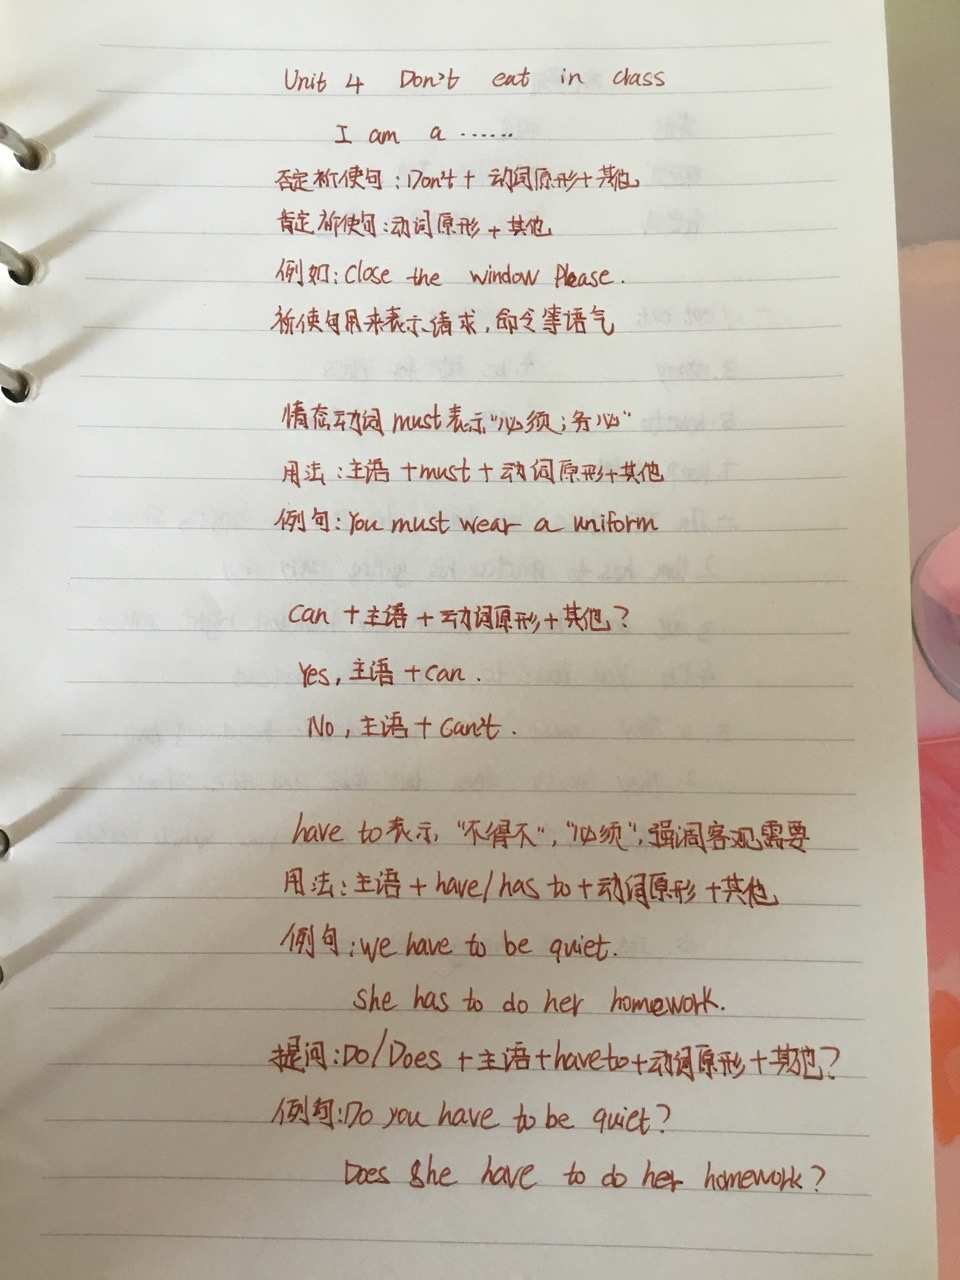 Unit 4 Don't eat in class
I am a ……
否定祈使句:Don't + 动词原形+其他
肯定祈使句:动词原形 + 其他
例如:Close the window Please.
祈使句用来表示请求,命令等语气
情态动词 must表示"必须;务必"
用法:主语 +must + 动词原形+其他
例句:You must wear a uniform
Can + 主语 + 动词原形+其他?
Yes,主语 + can.
No,主语 + can't.
have to 表示,"不得不","必须",强调客观需要
用法:主语 + have/has to + 动词原形 +其他
例句:We have to be quiet.
She has to do her homework.
提问:Do/Does + 主语+have to+动词原形 + 其他?
例句:Do you have to be quiet?
Does she have to do her homework?